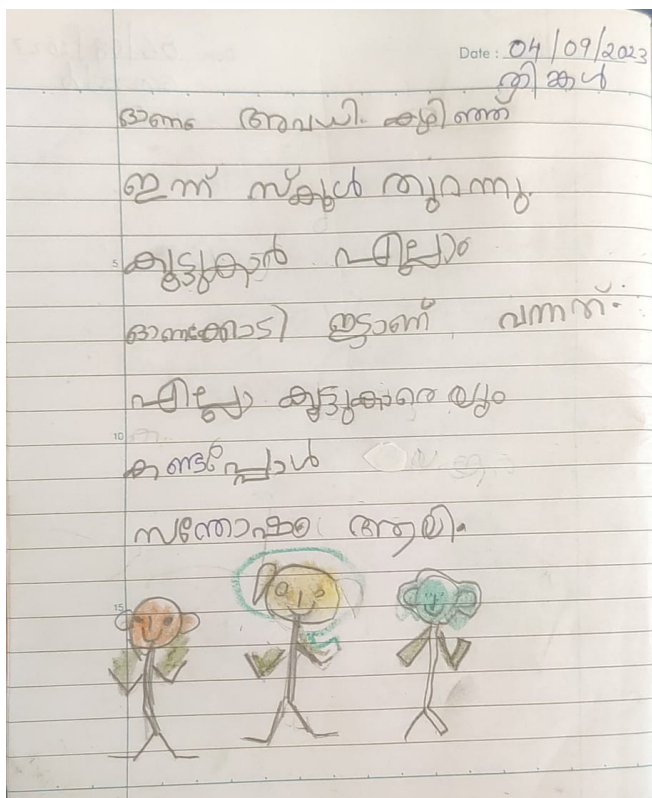 Date : 04/09/2023
തിങ്കൾ
ഓണം അവധി കഴിഞ്ഞ്
ഇന്ന് സ്കൂൾ തുറന്നു.
5
കൂട്ടുകാർ എല്ലാം
ഓണക്കോടി ഇട്ടാണ് വന്നത്.
എല്ലാ കൂട്ടുകാരെയും
10
കണ്ടപ്പോൾ
സന്തോഷം ആയി.
15